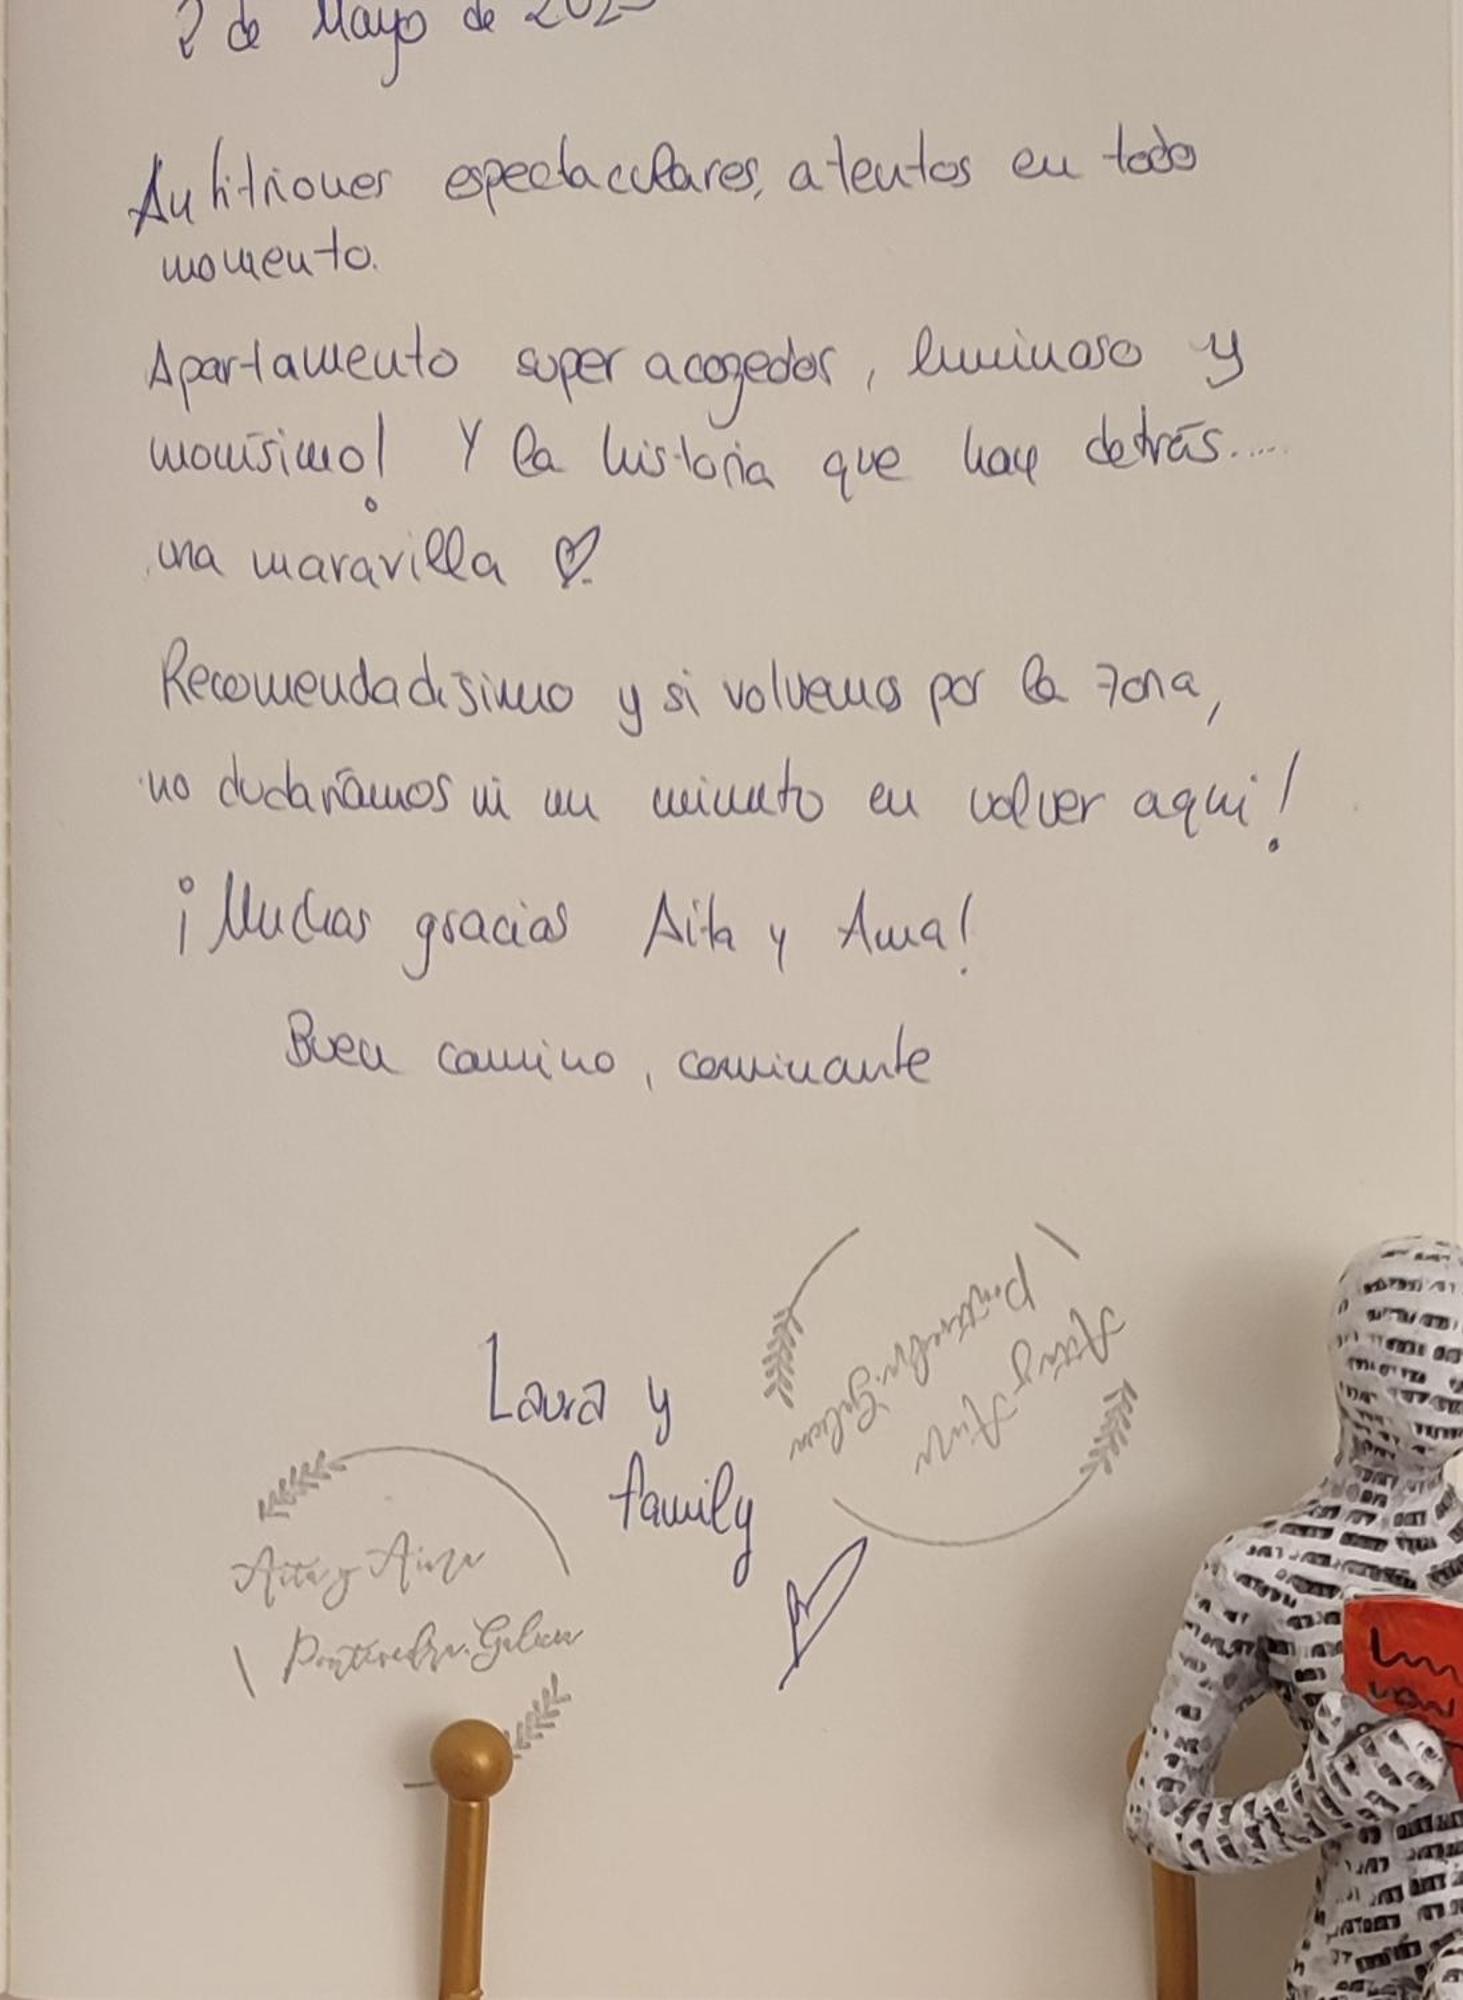 2 de Mayo de 202
Anfitriones espectaculares, atentos en todo
momento.
Apartamento super acogedor, luminoso y
monísimo! Y la historia que hay detrás.....
una maravilla ♡.
Recomendadisimo y si volvemos por la zona,
no dudaríamos ni un minuto en volver aquí!
¡Muchas gracias Aita y Ama!
Buen camino, caminante
Laura y
family
Pontevedra. Galicia
Pontevedra. Galicia